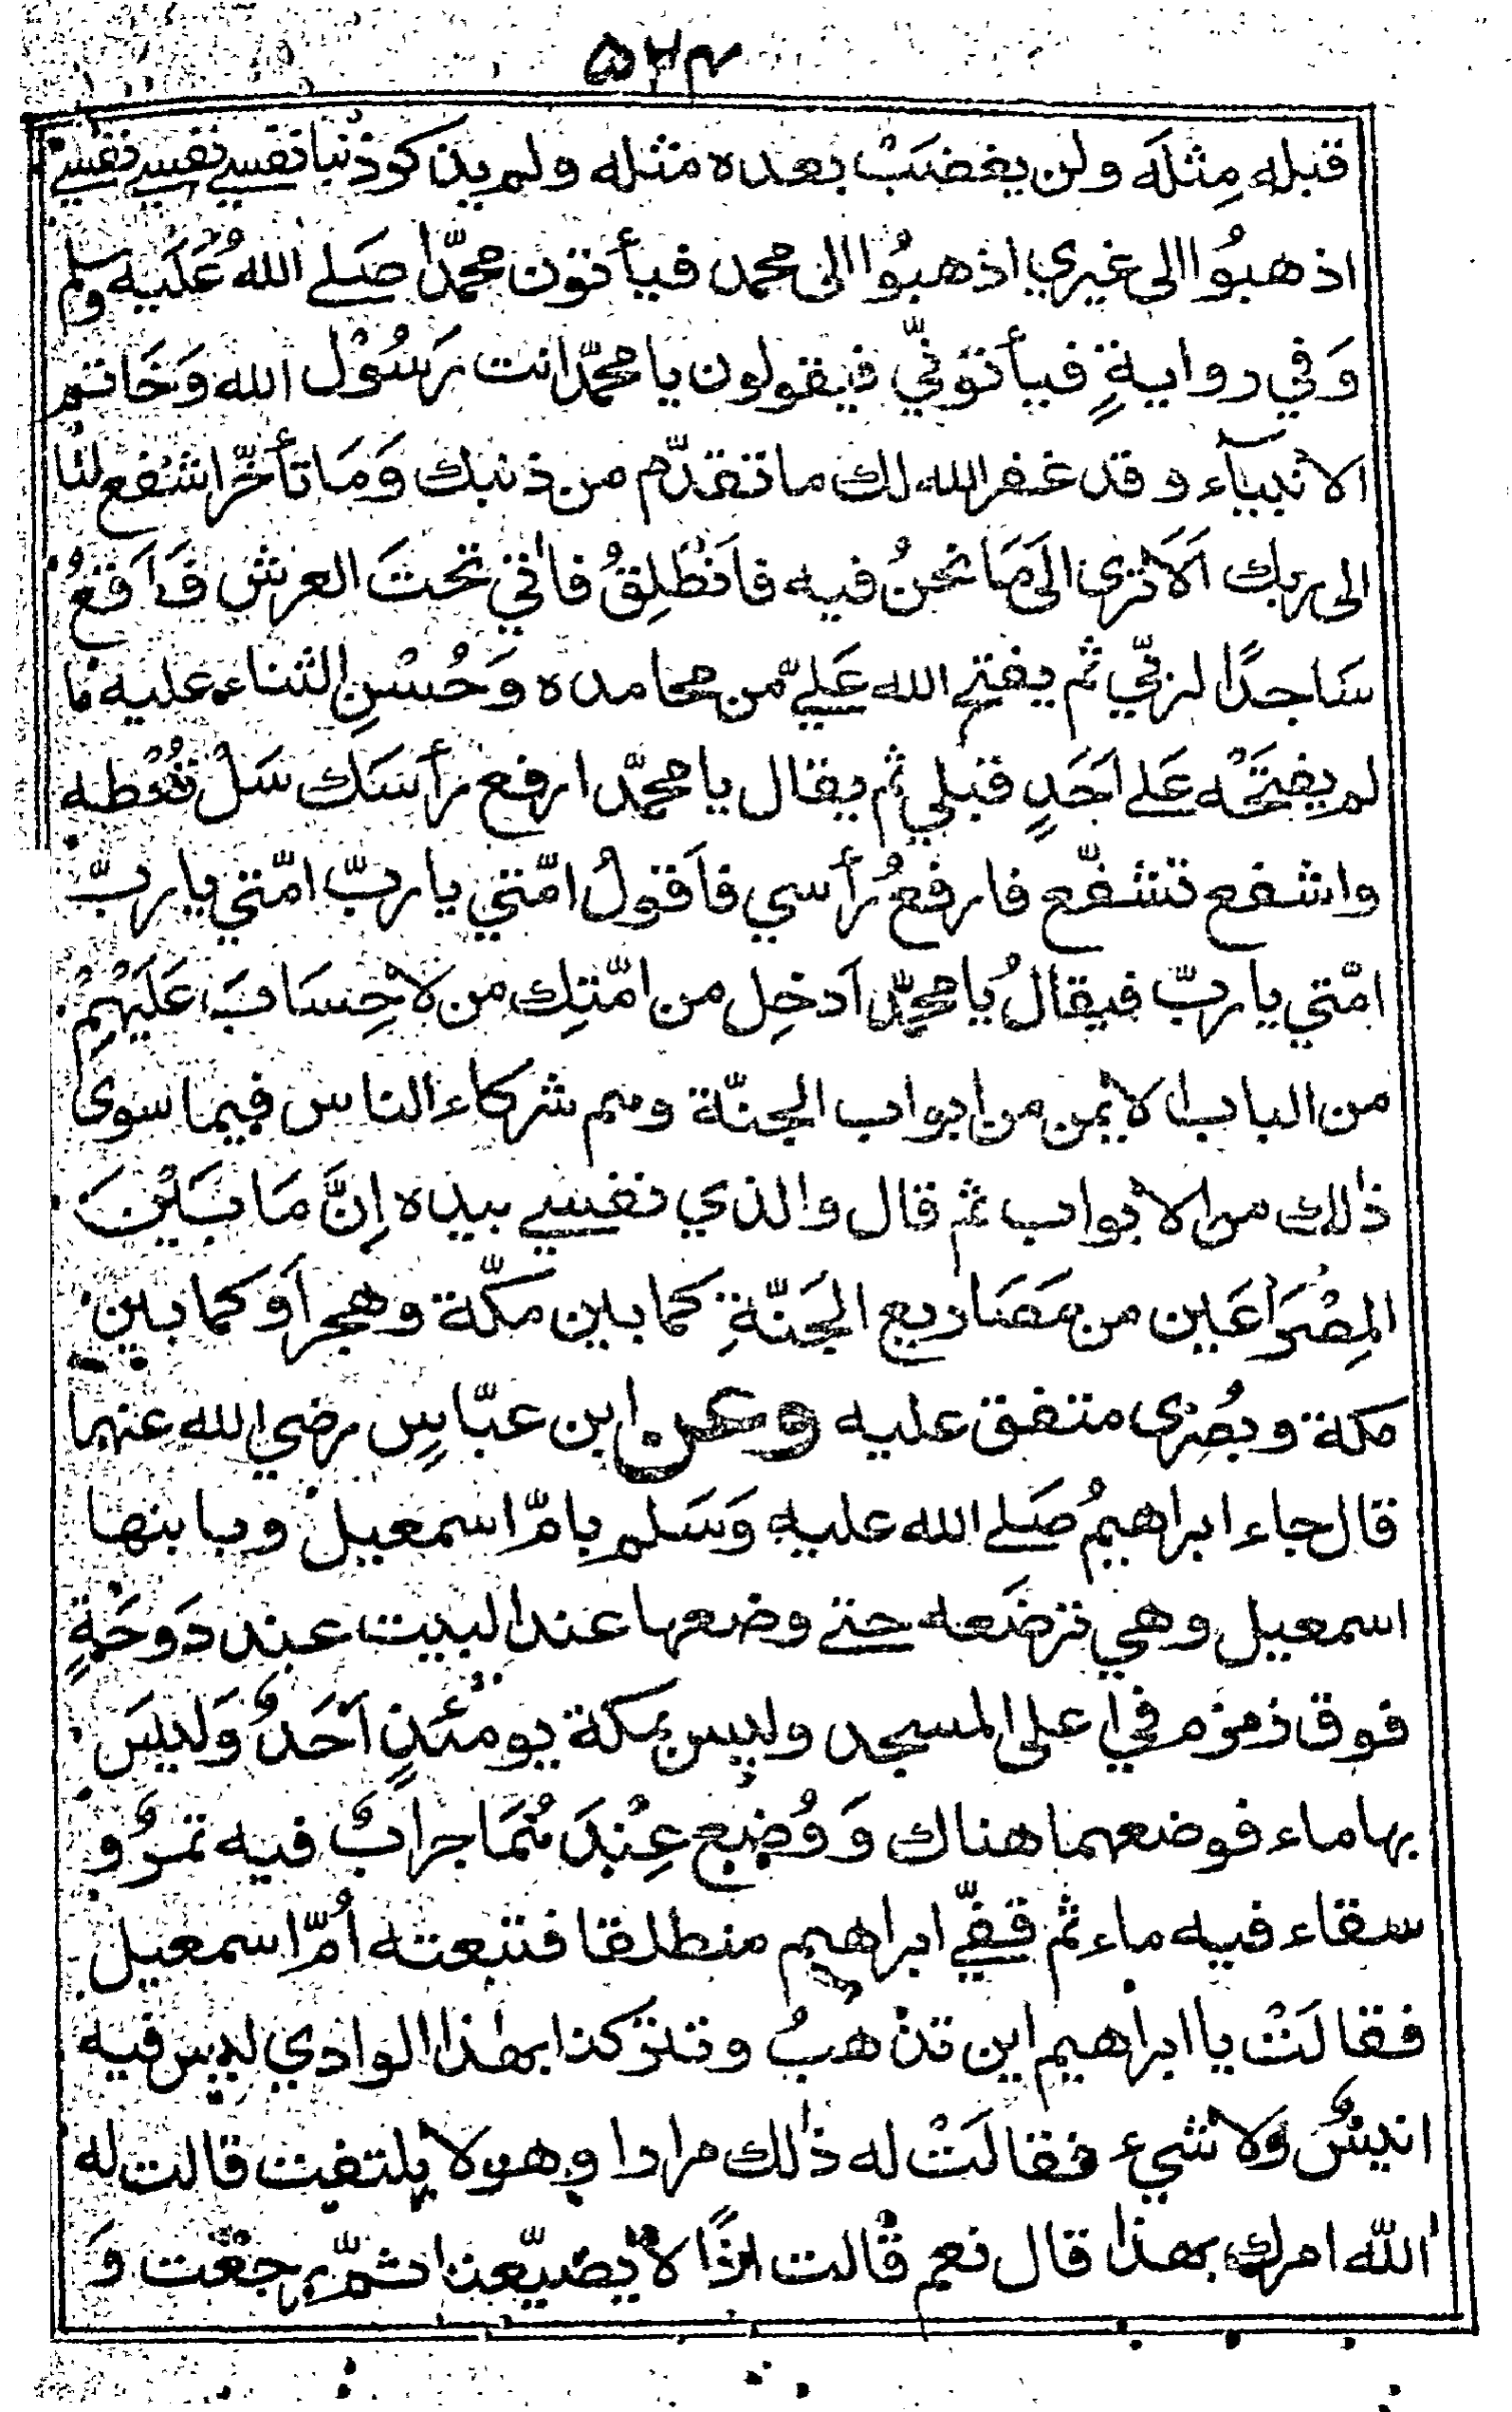 ۵۲۴
قبله مِثلَه ولن يغضبَ بعده مثله ولم يذكر ذنبا نفسي نفسي نفسي
اذهبُوا الى غيري اذهبُوا الى محمد فيأتون محمّدا صَلى اللهُ عَليه وسلم
وَفي روايةٍ فيأتوني فيقولون يا محمّد انت رَسُوْل الله وَخَاتم
الانبيآء وقد غفر الله لك ما تقدّم من ذنبك وَمَا تأخّر اشفع لنا
الى ربك اَلاَ ترى الَى مَا نحنُ فيه فاَنْطَلِقُ فاٰتي تحتَ العرش فَاَقعُ
سَاجدًا لربّي ثم يفتح الله عَليّ من محامده وَحُسْنِ الثناء عليه ما
لم يفتَحْه عَلى اَحَدٍ قبلي ثم يقال يا محمّد ارفع رأسَك سَلْ تُعْطه
واشفع تشفّع فارفعُ رأسي فاَقولُ امّتي يا ربّ امّتي يا ربّ
امّتي يا ربّ فيقالُ يا محمّد اَدخِل من امّتِك من لاَ حِسَابَ عَلَيْهِمْ
من الباب الايمن من ابواب الجنّة وهم شركاء الناس فيما سوى
ذٰلك من الابواب ثم قال والذي نفسي بيده اِنَّ مَا بَيْنَ
المِصْرَاعَين من مَصَاريع الجَنّةِ كما بين مكّة وهجر اَو كما بين
مكة وبُصْرى متفق عليه وعن ابن عبّاسٍ رضي الله عنهما
قال جاء ابراهيمُ صَلى الله عليه وَسَلم بامّ اسمعيل وبابنها
اسمعيل وهي ترضَعه حتى وضعها عند البيت عند دَوحَةٍ
فوق زمزم في اعلى المسجد وليس بمكة يومئذٍ اَحَدٌ وَليسَ
بها ماء فوضعهما هناك وَوُضِع عِنْدَهُمَا جرابٌ فيه تمرٌ و
سقاء فيه ماء ثم قفّى ابراهيم منطلقا فتبعته اُمّ اسمعيل
فقالَتْ يا ابراهيم اين تذهبُ وتتركنا بهٰذا الوادي ليس فيه
انيسٌ وَلا شيء فقالَتْ له ذٰلك مرارا وهو لا يلتفت قالت له
اٰللّه امرك بهذا قال نعم قالت اذًا لا يضيّعنا ثمّ رجعت وَ